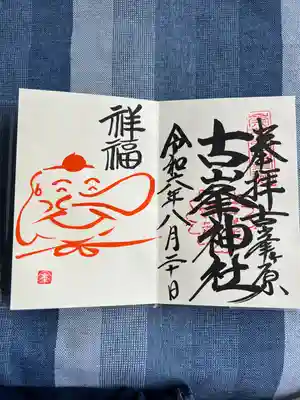 奉拝 古峯ヶ原
古峯神社
令和六年八月二十日
祥福